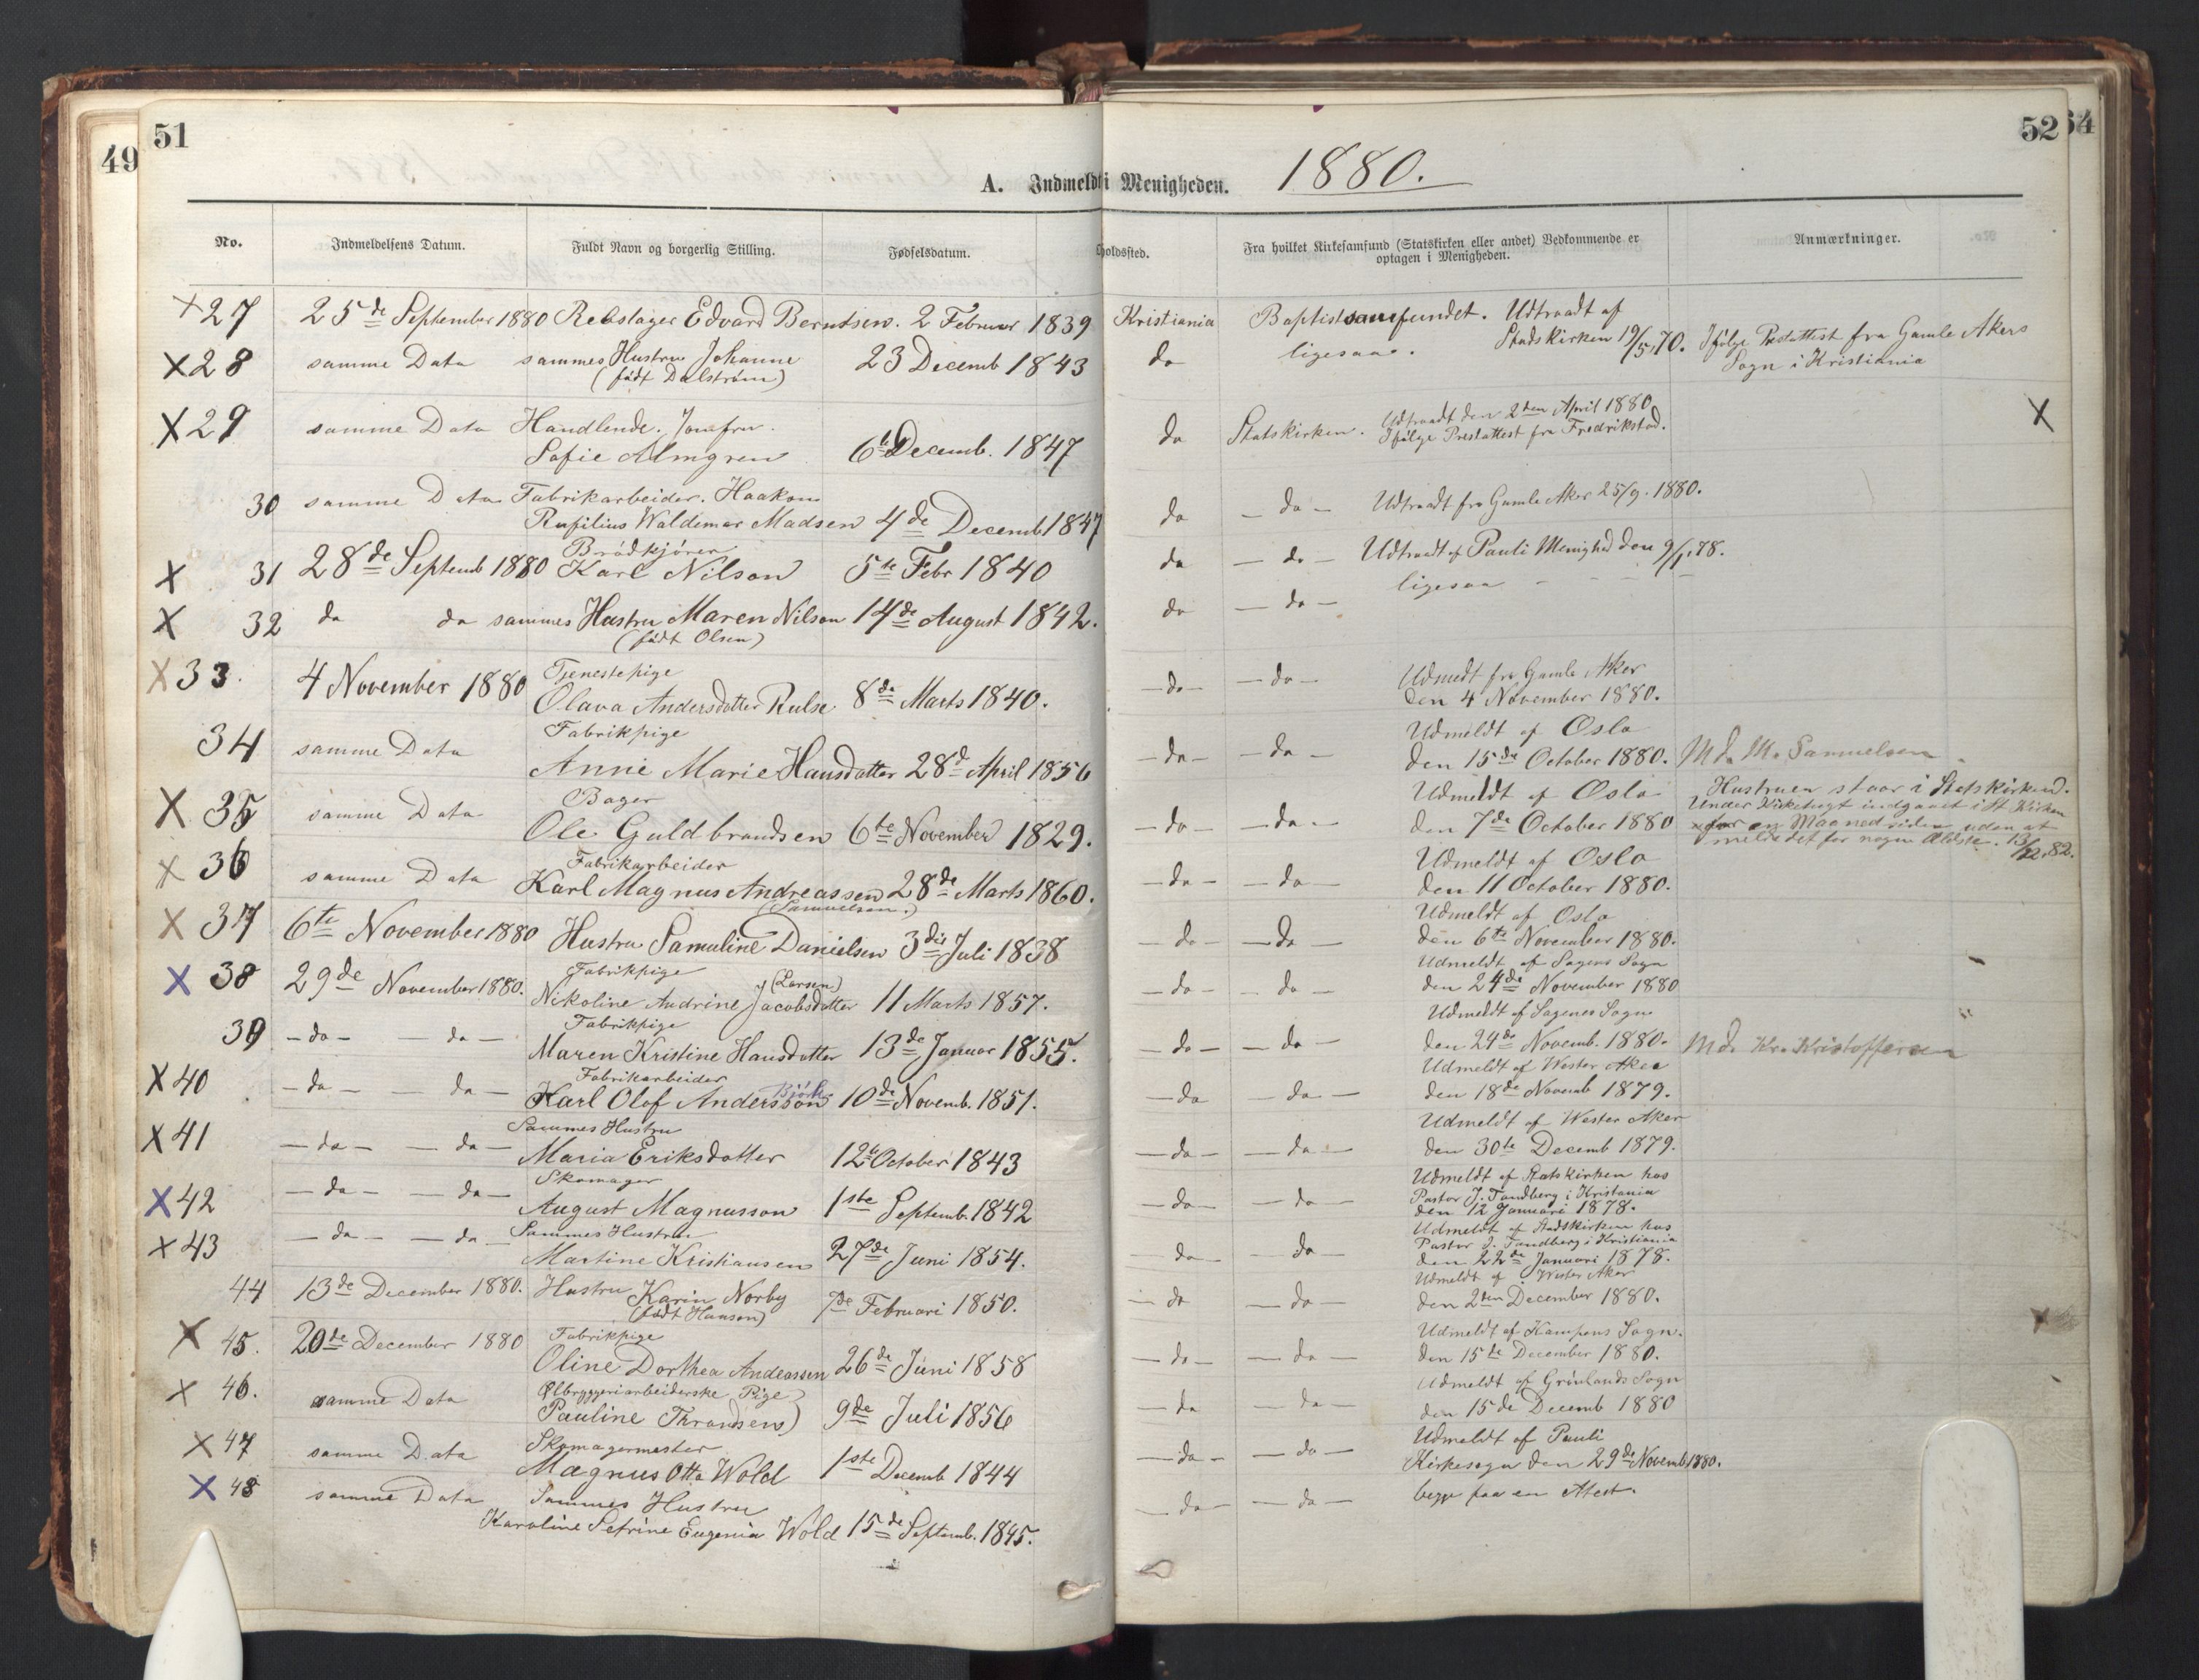 49
51
52
64
A. Indmeldt i Menigheden. 1880.
No. Indmeldelsens Datum. Fuldt Navn og borgerlig Stilling. Fødselsdatum. holdssted. Fra hvilket Kirkesamfund (Statskirken eller andet) Vedkommende er Anmærkninger.
optagen i Menigheden.
X 27 25de September 1880 Rebslager Edvard Berntsen. 2 Februar 1839 Kristiania Baptistsamfundet. Udtraadt af
Stadskirken 19/5.70. Ifølge Prestattest fra Gamle Akers
X 28 samme Data sammes Hustru Johanne 23 Decemb 1843 do ligesaa. Sogn i Kristiania
(født Dalstrøm)
X 29 samme Data Handlende. Jomfru. do Statskirken. Udtraadt den 2den April 1880 X
Sofie Almgren 6te Decemb. 1847 Ifølge Prestattest fra Fredrikstad.
30 samme Data Fabrikarbeider. Haakon do — do — Udtraadt fra Gamle Aker 25/9. 1880.
Rufilius Waldemar Madsen 4de Decemb 1847
Brödkjörer
X 31 28de Septemb 1880 Karl Nilson 5te Febr 1840 do — do — Udtraadt af Pauli Menighed den 9/1.78.
X 32 do do sammes Hustru Maren Nilson 14de August 1842. do — do — ligesaa
(født Olsen)
X 33. 4 November 1880 Tjenestepige — do — — do — Udmeldt fra Gamle Aker
Olava Andersdatter Rulse 8de Marts 1840. den 4 November 1880.
34 samme Data Fabrikpige — do — — do — Udmeldt af Oslo
Anne Marie Hansdatter 28de April 1856 den 15de October 1880. M. Samuelsen
X 35 samme Data Bager — do — — do — Udmeldt af Oslo Hustruen staar i Statskirken.
Ole Guldbrandsen 6te November 1829. den 7de October 1880 Under Kirketugt indgaaet i St. Kirken
for en Maaned siden uden at
melde det for nogen Ældste. 13/12.82.
X 36 samme Data Fabrikarbeider — do — — do — Udmeldt af Oslo
Karl Magnus Andreassen 28de Marts 1860. den 11 October 1880.
(Samuelsen.)
X 37 6te November 1880 Hustru Samuline Danielsen 3die Juli 1838 — do — — do — Udmeldt af Oslo
den 6te November 1880.
X 38 29de November 1880. Fabrikpige (Larsen) — do — — do — Udmeldt af Sagens Sogn
Nikoline Andrine Jacobsdatter 11 Marts 1857. den 24de November 1880
39 — do — — do — Fabrikpige — do — — do — Udmeldt af Sagenes Sogn
Maren Kristine Hansdatter 13de Januar 1855. den 24de Novemb. 1880. Md. Kr. Kristoffersen
X 40 — do — — do — Fabrikarbeider — do — — do — Udmeldt af Wester Aker
Karl Olof Andersson Björk 10de Novemb. 1851. den 18de Novemb 1879.
X 41 — do — — do — Sammes Hustru — do — — do — Udmeldt af Wester Aker
Maria Eriksdatter 12te October 1843 den 30te Decemb 1879.
X 42 — do — — do — Skomager — do — — do — Udmeldt af Statskirken hos
August Magnusson 1ste Septemb. 1842 Pastor J. Tandberg i Kristiania
den 12 Januari 1878.
X 43 — do — — do — Sammes Hustru — do — do — Udmeldt af Stadskirken hos
Martine Kristiansen 27de Juni 1854. Pastor J. Tandberg i Kristiania
den 22de Januari 1878.
44 13de December 1880. Hustru Karin Norby 7de Februari 1850. — do — do — Udmeldt af Wester Aker
(født Hanson) den 2den December 1880.
X 45. 20de December 1880 Fabrikpige — do — — do — Udmeldt af Kampens Sogn. x
Oline Dorthea Andeassen 26de Juni 1858 den 15de December 1880.
X 46. samme Data Ølbryggeriarbeiderske Pige — do — do — Udmeldt af Grønlands Sogn
Pauline Thrandsen 9de Juli 1856 den 15de Decemb 1880
X 47 samme Data Skomagermester — do — — do — Udmeldt af Pauli
Magnus Otto Wold 1ste Decemb 1844 Kirkesogn den 29de Novemb. 1880.
X 48 samme Data Sammes Hustru — do — — do — begge paa en Attest.
Karoline Sefrine Eugenia Wold 15de Septemb. 1845.